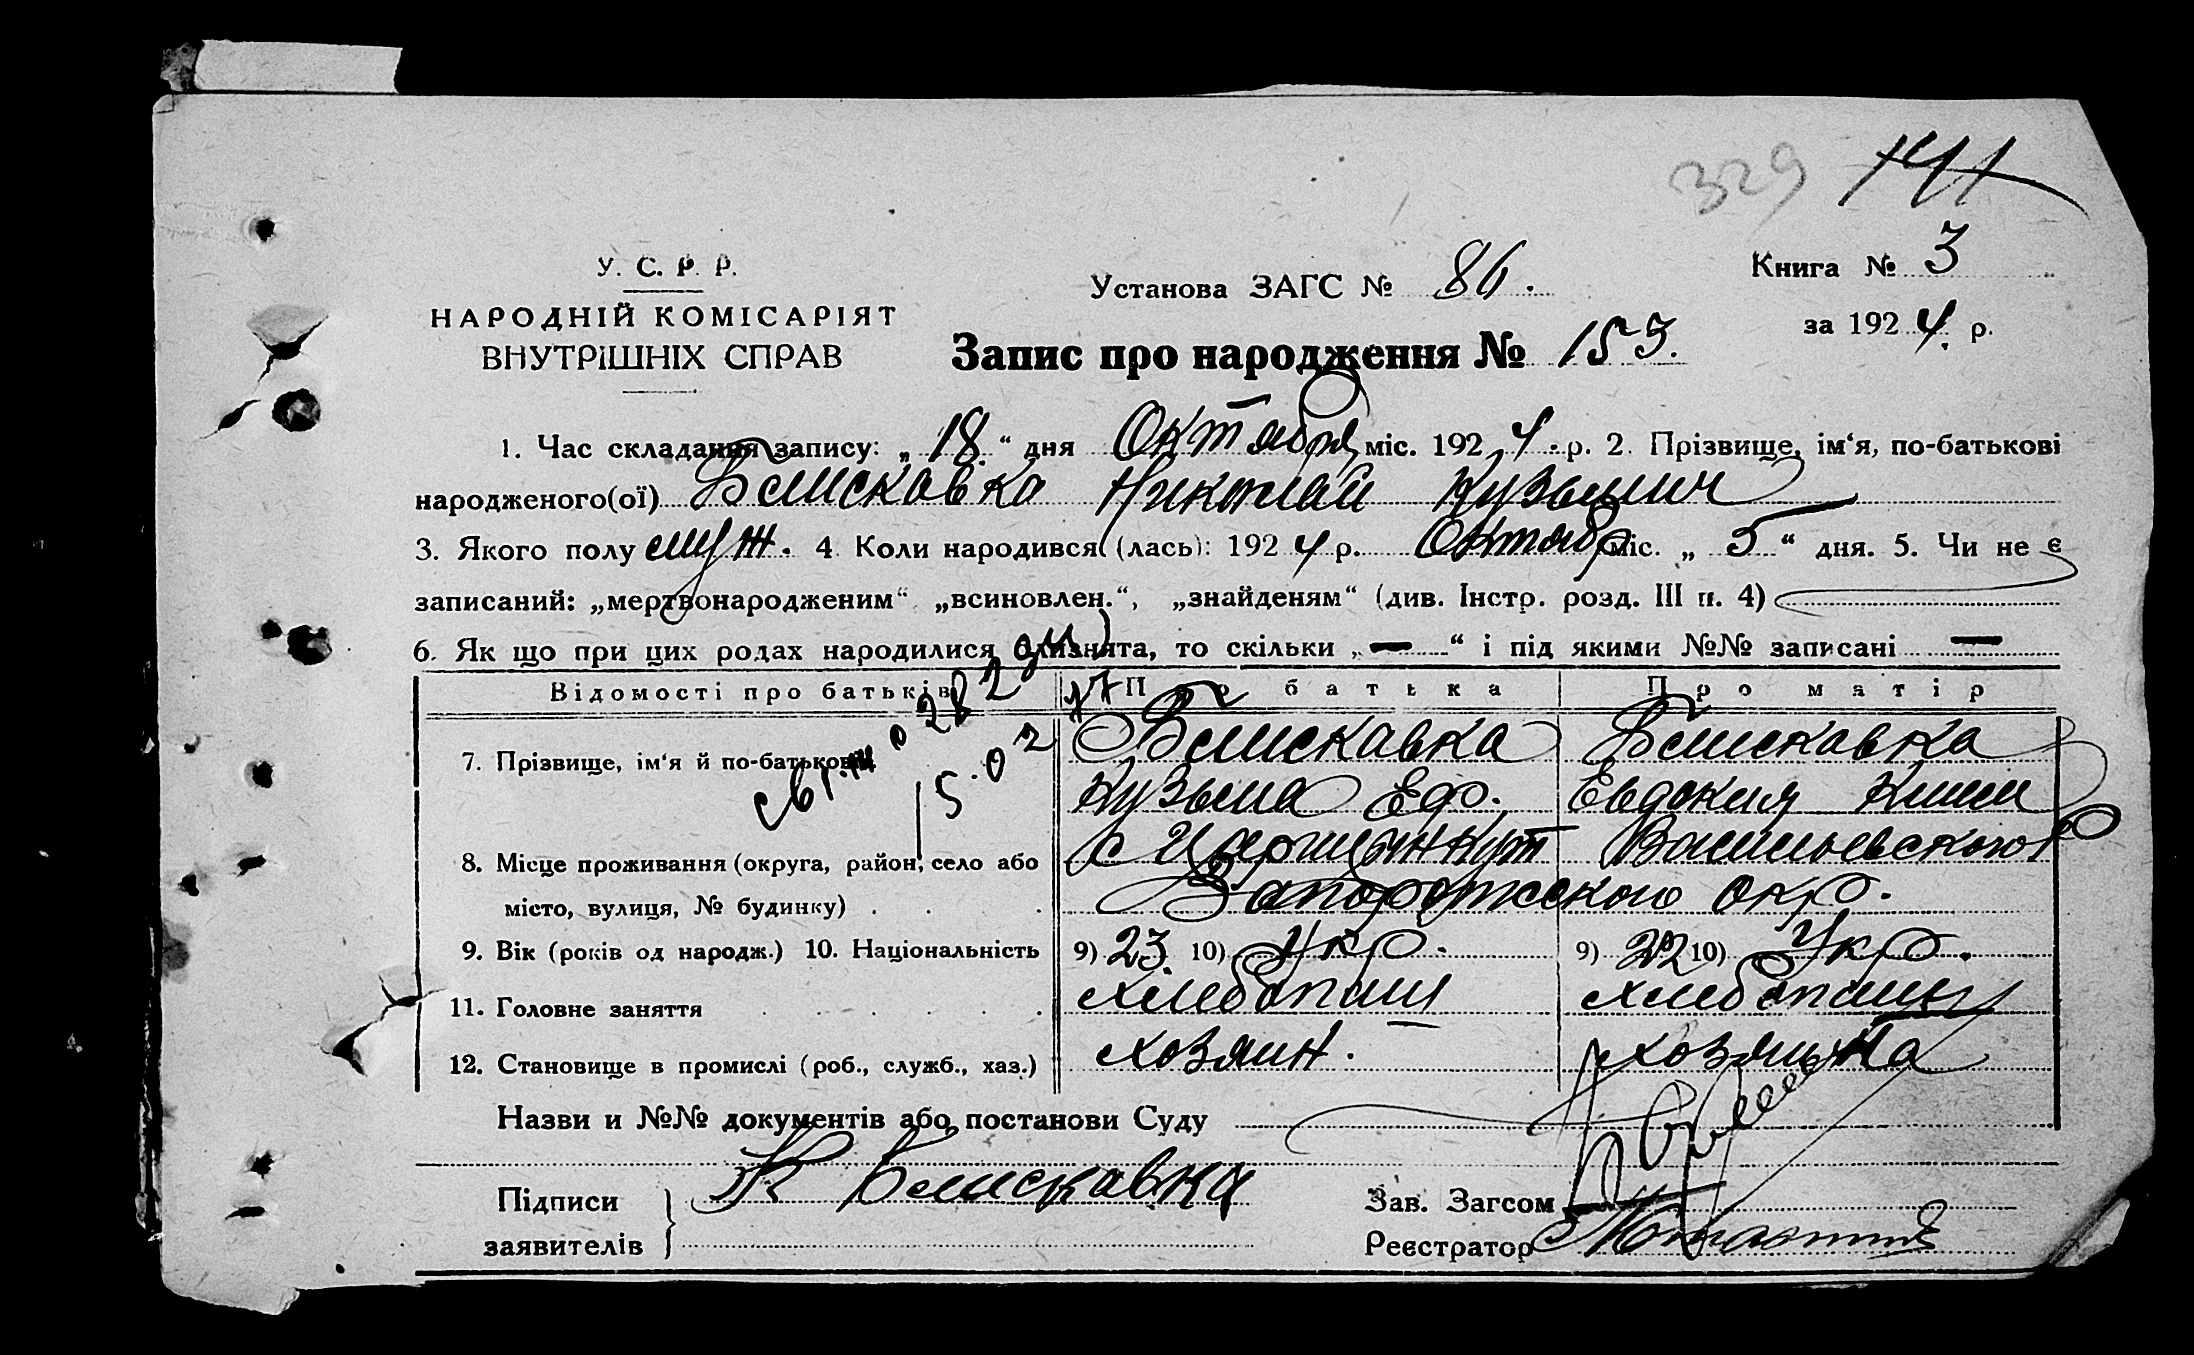 329
У. С. Р. Р.
НАРОДНІЙ КОМІСАРІЯТ
ВНУТРІШНІХ СПРАВ
Установа ЗАГС № 86.
Книга № 3
за 1924 р.
Запис про народження № 153.
1. Час складання запису: „18“ дня Октября міс. 1924 р. 2. Прізвище, ім‘я, по-батькові
народженого(ої) Блискавка Николай Кузьмич
3. Якого полу муж. 4 Коли народився (лась): 1924 р. Октябр міс. „5“ дня. 5. Чи не є
записаний: „мертвонародженим“ „всиновлен.“, „знайденям“ (див. Інстр. розд. III п. 4)
6. Як що при цих родах народилися близнята, то скільки „—“ і під якими №№ записані —
Відомості про батьків Про батька Про матір
7. Прізвище, ім‘я й по-батькові Блискавка Блискавка
Кузьма Еф. Евдокия Клим
8. Місце проживання (округа, район, село або с Царицинкут Васильевского р
місто, вулиця, № будинку) Запорожского окр.
9. Вік (років од народж.) 10. Національність 9) 23 10) Укр. 9) 22 10) Укр.
11. Головне заняття хлебопаш хлебопаш
12. Становище в промислі (роб., служб., хаз.) хозяин. хозяйка
Назви и №№ документів або постанови Суду
Підписи К Блискавка Зав. Загсом
заявителів Реєстратор